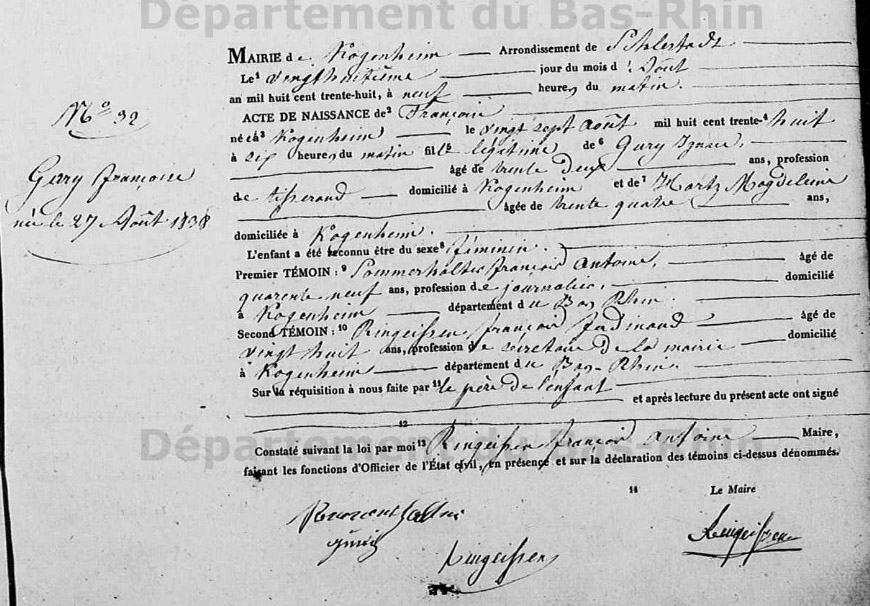 Département du Bas-Rhin
MAIRIE de Kogenheim Arrondissement de Schlestadt
Le¹ vingthuitième jour du mois d'Août
an mil huit cent trente-huit, à neuf heures du matin.
N° 32
ACTE DE NAISSANCE de² Françoise
née à³ Kogenheim le vingt sept août mil huit cent trente-⁴huit
à six heures du matin fille⁵ légitime de⁶ Gury Ignace,
âgé de trente deux ans, profession
Gury Françoise
née le 27 Août 1838
de tisserand domicilié à Kogenheim et de⁷ Hartz Magdeleine
âgée de trente quatre ans,
domiciliée à Kogenheim.
L'enfant a été reconnu être du sexe⁸ féminin.
Premier TÉMOIN :⁹ Sommerhalter françois Antoine, âgé de
quarente neuf ans, profession de journalier, domicilié
à Kogenheim département du Bas Rhin.
Second TÉMOIN :¹⁰ Ringeissen, françois Ferdinand âgé de
vingt huit ans, profession de sécrétaire de la mairie domicilié
à Kogenheim département du Bas-Rhin.
Sur la réquisition à nous faite par¹¹ le père de l'enfant
et après lecture du présent acte ont signé
12
Département du Bas-Rhin
Constaté suivant la loi par moi¹³ Ringeissen françois Antoine Maire,
faisant les fonctions d'Officier de l'État civil, en présence et sur la déclaration des témoins ci-dessus dénommés.
14 Le Maire
Ringeissen
Ringeissen